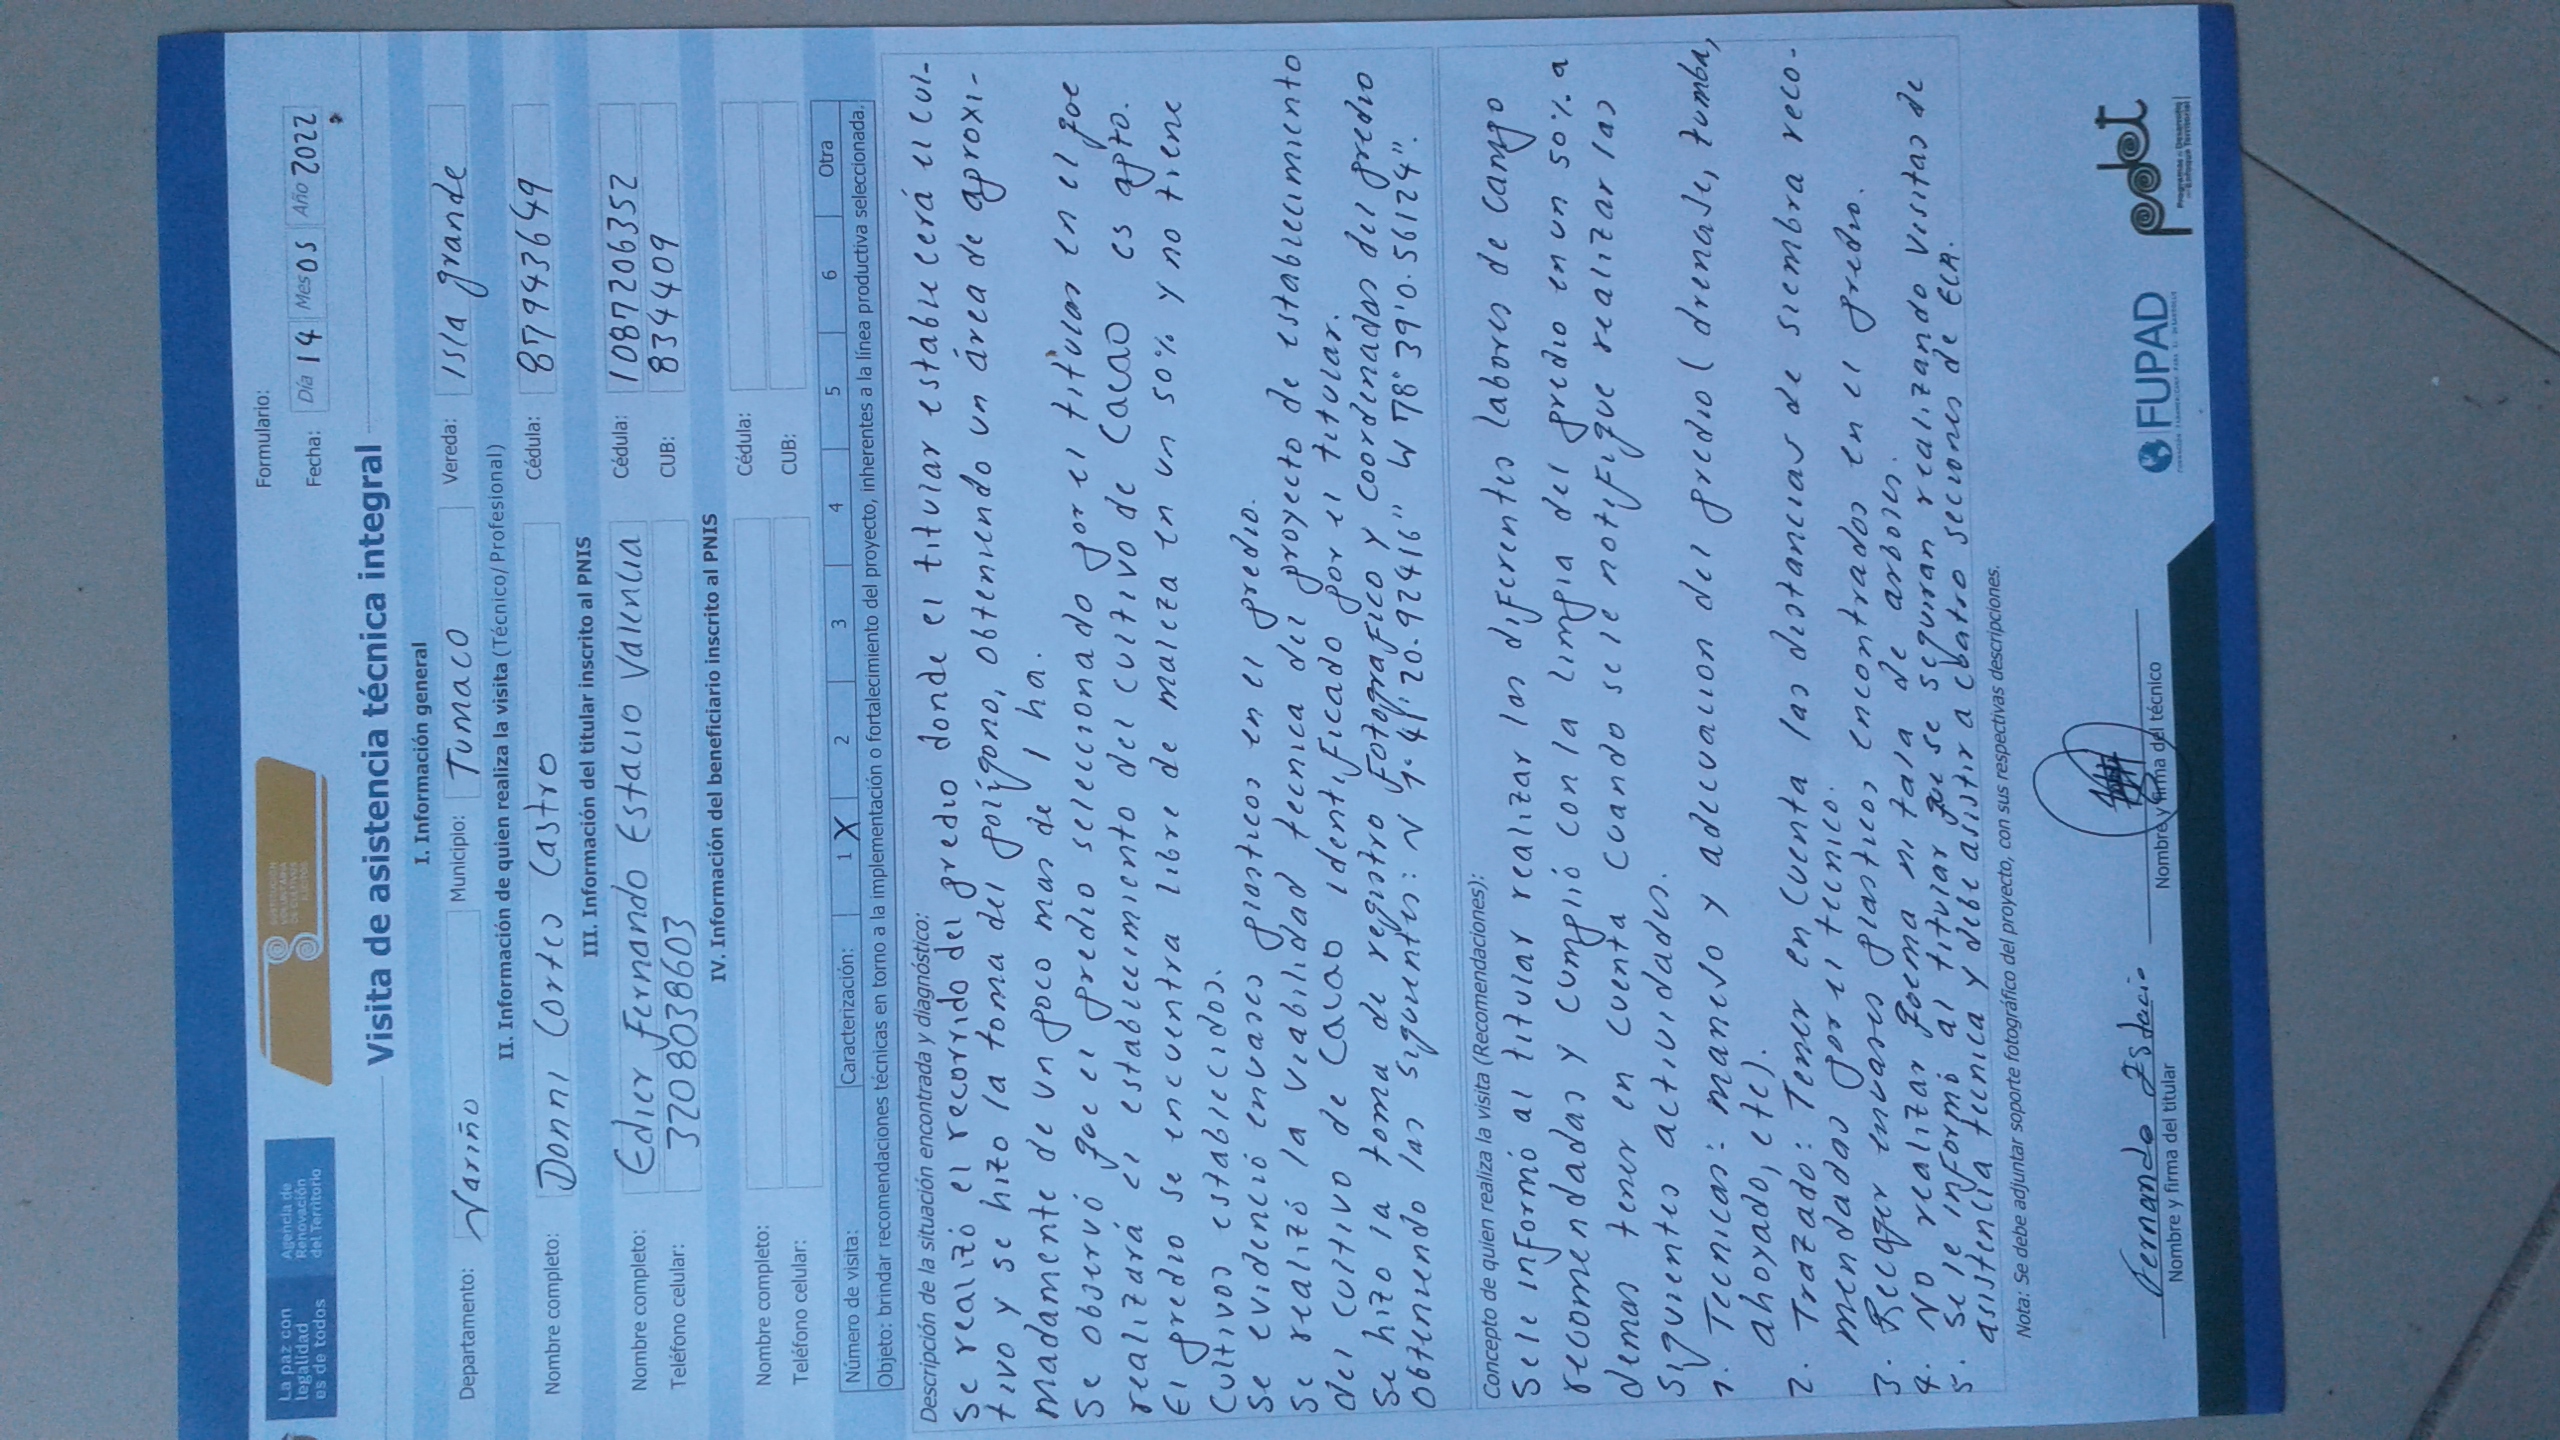 La paz con
legalidad
es de todos
Agencia de
Renovación
del Territorio
SUSTITUCIÓN
VOLUNTARIA
DE CULTIVOS
ILÍCITOS
Formulario:
Fecha: Día 14 Mes 05 Año 2022
Visita de asistencia técnica integral
I. Información general
Departamento: Nariño Municipio: Tumaco Vereda: Isla grande
II. Información de quien realiza la visita (Técnico/Profesional)
Nombre completo: Donni Cortes Castro Cédula: 87943649
III. Información del titular inscrito al PNIS
Nombre completo: Edier Fernando Estacio Valencia Cédula: 1087206352
Teléfono celular: 3208038603 CUB: 834409
IV. Información del beneficiario inscrito al PNIS
Nombre completo: Cédula:
Teléfono celular: CUB:
Número de visita: Caracterización: 1 X 2 3 4 5 6 Otra
Objeto: brindar recomendaciones técnicas en torno a la implementación o fortalecimiento del proyecto, inherentes a la línea productiva seleccionada.
Descripción de la situación encontrada y diagnóstico:
Se realizó el recorrido del predio donde el titular establecerá el cul-
tivo y se hizo la toma del polígono, obteniendo un área de aproxi-
madamente de un poco mas de 1 ha.
Se observó que el predio seleccionado por el titular en el que
realizará el establecimiento del cultivo de Cacao es apto.
El predio se encuentra libre de maleza en un 50% y no tiene
cultivos establecidos.
Se evidenció envases plasticos en el predio.
Se realizó la viabilidad tecnica del proyecto de establecimiento
del cultivo de Cacao identificado por el titular.
Se hizo la toma de registro fotografico y coordenadas del predio
obteniendo las siguientes: N 1°41'20.92416" W 78°39'0.56124".
Concepto de quien realiza la visita (Recomendaciones):
Se le informó al titular realizar las diferentes labores de campo
recomendadas y cumplió con la limpia del predio en un 50% a
demas tener en cuenta cuando se le notifique realizar las
siguientes actividades.
1. Tecnicas: manejo y adecuacion del predio (drenaje, tumba,
ahoyado, etc).
2. Trazado: Tener en cuenta las distancias de siembra reco-
mendadas por el tecnico.
3. Recoger envases plasticos encontrados en el predio.
4. No realizar quema ni tala de arboles.
5. Se le informó al titular que se seguiran realizando visitas de
asistencia tecnica y debe asistir a cuatro secciones de ECA.
Nota: Se debe adjuntar soporte fotográfico del proyecto, con sus respectivas descripciones.
Fernando Estacio
Nombre y firma del titular
Nombre y firma del técnico
FUPAD
pdet
Programas de Desarrollo
con Enfoque Territorial